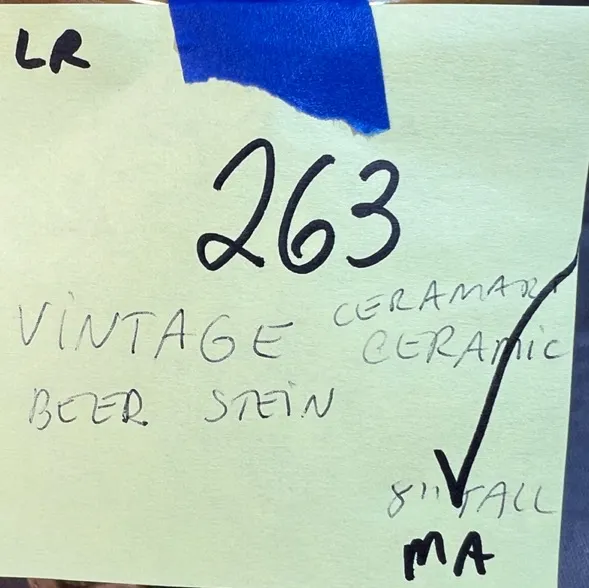 LR
263
CERAMART
VINTAGE CERAMIC
BEER STEIN
8" TALL
MA